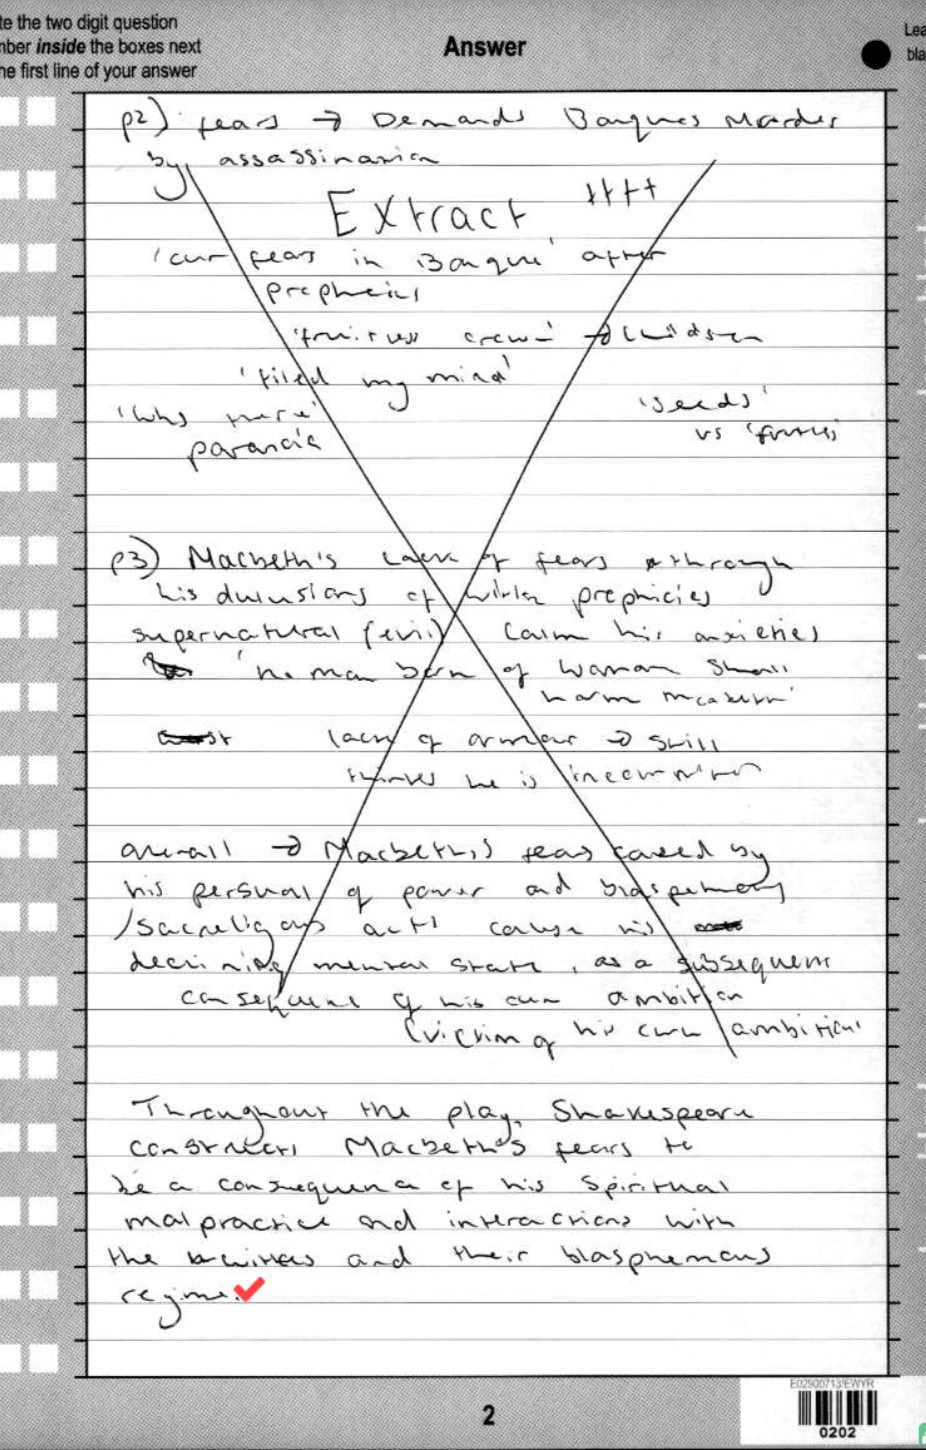 te the two digit question
nber inside the boxes next
he first line of your answer
Answer
Lea
bla
p2) fears → Demands Banquos Murder
by assassination
Extract ++++
'our fears in Banquo' after
prophecies
'fruitless crown' → children
'filed my mind'
'Who there'
paranoia
'seeds'
vs 'fruitless'
p3) Macbeth's lack of fears through
his delusions of witch prophicies
supernatural (evil) calm his anxieties
'no man born of woman shall
harm macbeth'
lack of armour → still
thinks he is
overall → Macbeth's fears caused by
his persual of power and blaspehmy
/sacreligous acts cause his
declining mental state, as a subsequent
consequence of his own ambition
(victim of his own ambition'
Throughout the play, Shakespeare
constructs Macbeth's fears to
be a consequence of his spiritual
malpractice and interactions with
the witches and their blasphemous
regime.
2
E02900713/EWYR
0202